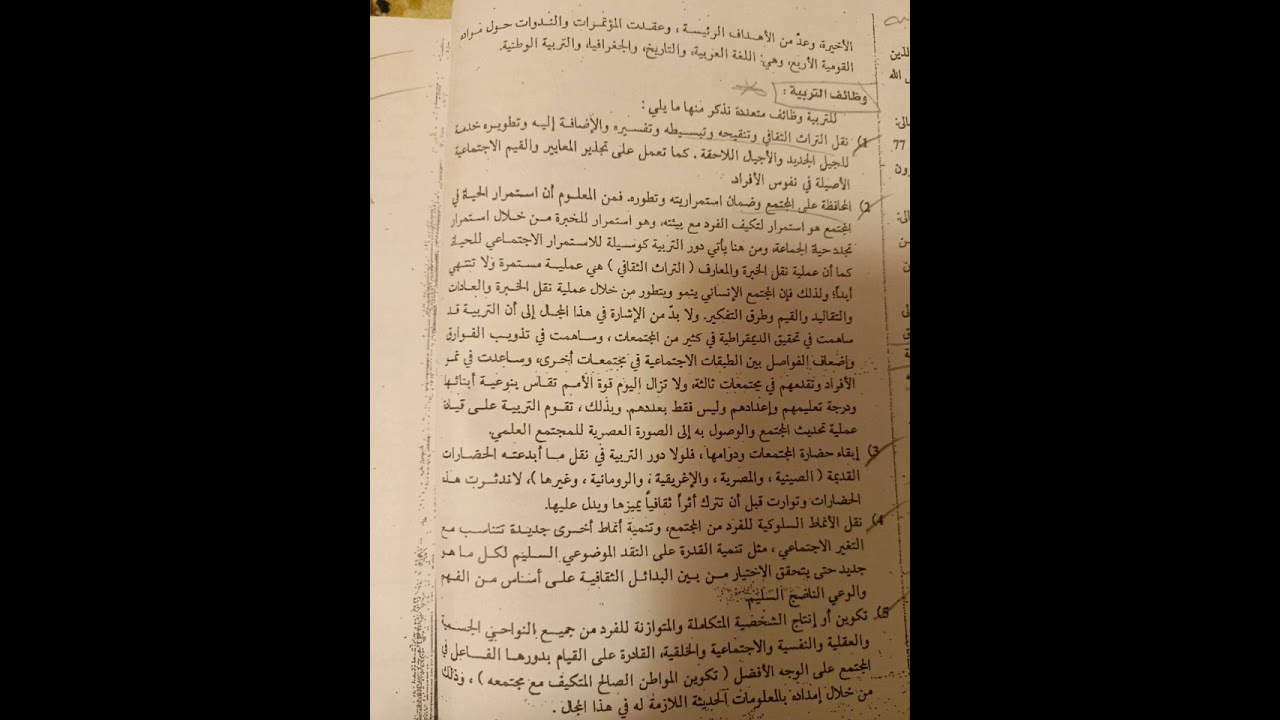 الأخيرة، وعدّ من الأهداف الرئيسة ، وعقدت المؤتمرات والندوات حول مراده
القومية الأربع، وهي: اللغة العربية، والتاريخ، والجغرافيا، والتربية الوطنية.
وظائف التربية :
للتربية وظائف متعددة نذكر منها ما يلي :
1) نقل التراث الثقافي وتنقيحه وتبسيطه وتفسيره والإضافة إليه وتطويره خدمة
للجيل الجديد والأجيال اللاحقة . كما تعمل على تجذير المعايير والقيم الاجتماعية
الأصيلة في نفوس الأفراد.
2) المحافظة على المجتمع وضمان استمراريته وتطوره. فمن المعلوم أن استمرار الحياة في
المجتمع هو استمرار لتكيف الفرد مع بيئته، وهو استمرار للخبرة من خلال استمرار
تجدد حياة الجماعة، ومن هنا يأتي دور التربية كوسيلة للاستمرار الاجتماعي للحياة
كما أن عملية نقل الخبرة والمعارف ( التراث الثقافي ) هي عملية مستمرة ولا تنتهي
أبداً؛ ولذلك فإن المجتمع الإنساني ينمو ويتطور من خلال عملية نقل الخبرة والعادات
والتقاليد والقيم وطرق التفكير. ولا بدّ من الإشارة في هذا المجال إلى أن التربية قد
ساهمت في تحقيق الديمقراطية في كثير من المجتمعات ، وساهمت في تذويب الفوارق
وإضعاف الفواصل بين الطبقات الاجتماعية في مجتمعات أخرى، وساعدت في نمو
الأفراد وتقدمهم في مجتمعات ثالثة، ولا تزال اليوم قوة الأمم تقاس بنوعية أبنائها
ودرجة تعليمهم وإعدادهم وليس فقط بعددهم. وبذلك ، تقوم التربية على قيادة
عملية تحديث المجتمع والوصول به إلى الصورة العصرية للمجتمع العلمي.
3) إبقاء حضارة المجتمعات ودوامها، فلولا دور التربية في نقل ما أبدعته الحضارات
القديمة ( الصينية ، والمصرية ، والإغريقية ، والرومانية ، وغيرها )، لاندثرت هذه
الحضارات وتوارت قبل أن تترك أثراً ثقافياً يميزها ويدل عليها.
4) نقل الأنماط السلوكية للفرد من المجتمع، وتنمية أنماط أخرى جديدة تتناسب مع
التغير الاجتماعي ، مثل تنمية القدرة على النقد الموضوعي السليم لكل ما هو
جديد حتى يتحقق الإختيار من بين البدائل الثقافية على أساس من الفهم
والوعي الناضج السليم.
5) تكوين أو إنتاج الشخصية المتكاملة والمتوازنة للفرد من جميع النواحي الجسمية
والعقلية والنفسية والاجتماعية والخلقية، القادرة على القيام بدورها الفاعل في
المجتمع على الوجه الأفضل ( تكوين المواطن الصالح المتكيف مع مجتمعه ) ، وذلك
من خلال إمداده بالمعلومات الحديثة اللازمة له في هذا المجال .